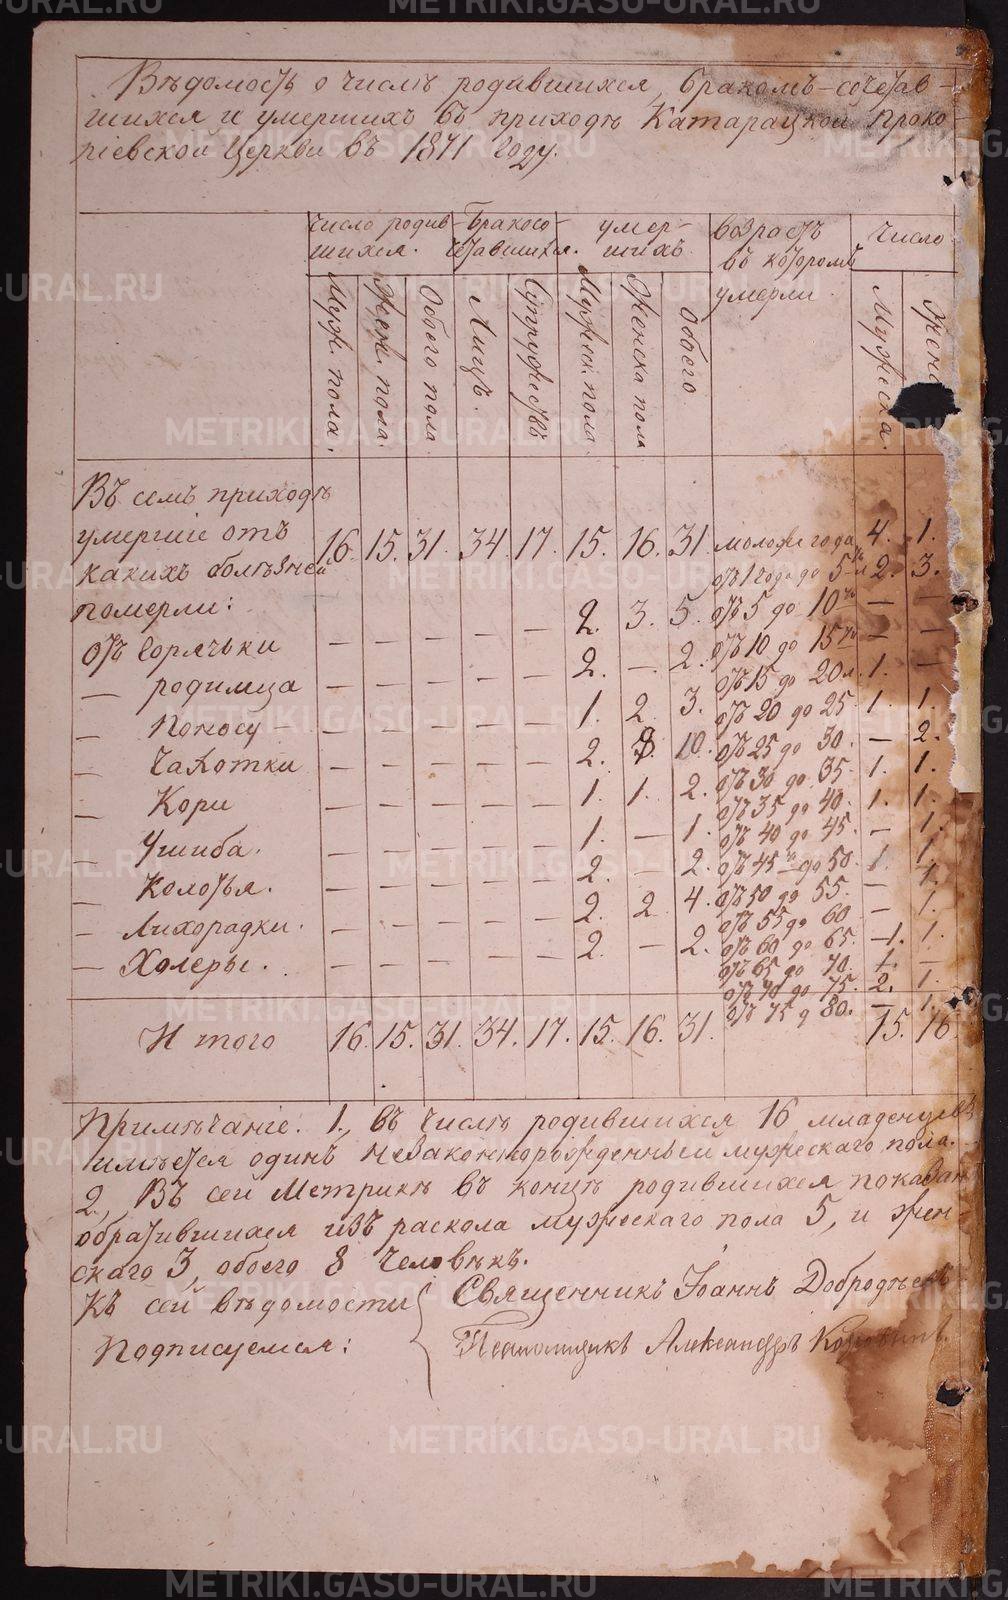 Вѣдомость о числѣ родившихся, бракомъ-сочетав-
шихся и умершихъ въ приходѣ Катарацкой Проко-
піевской Церкви въ 1871 году.
Число родив-
шихся.
Бракосо-
четавшихся.
умер-
шихъ
возрастъ
въ которомъ
умерли
Число
Муж. пола.
Жен. пола.
Обоего пола
Лицъ.
Супружествъ
Мужск. пола
Женска пола
Обоего
Мужеска.
Женс
Въ семъ приходѣ
умершіе отъ
какихъ болѣзней
померли:
16. 15. 31. 34. 17. 15. 16. 31.
моложе года 4. 1.
отъ 1 года до 5 л 2. 3.
отъ 5 до 10 — —
отъ 10 до 15 — —
отъ 15 до 20 л. 1. —
отъ 20 до 25 1. 1.
отъ 25 до 30. — 2.
отъ 30 до 35. 1. 1.
отъ 35 до 40. 1. 1.
отъ 40 до 45. — 1.
отъ 45 до 50. 1. 1.
отъ 50 до 55. — 1.
отъ 55 до 60 — 1.
отъ 60 до 65. 1. 1.
отъ 65 до 70. 1. —
отъ 70 до 75. 2. 1.
отъ 75 д 80. — 1.
отъ Горячьки — — — — — 2. 3. 5.
— родимца — — — — — 2. — 2.
— Поносу — — — — — 1. 2. 3.
— Чахотки — — — — — 2. 8. 10.
— Кори — — — — — 1. 1. 2.
— Ушиба. — — — — — 1. — 1.
— Колотья. — — — — — 2. — 2.
— Лихорадки. — — — — — 2. 2 4.
— Холеры. — — — — — 2. — 2.
Итого 16. 15. 31. 34. 17. 15. 16. 31. 15. 16.
Примѣчаніе. 1., въ числѣ родившихся 16 младенцевъ
имѣется одинъ незаконнорожденный мужескаго пола.
2., Въ сей Метрикѣ въ концѣ родившихся показан
обратившихся изъ раскола мужескаго пола 5, и жен-
скаго 3, обоего 8 человѣкъ.
Къ сей вѣдомости
Подписуемся:
Священникъ Іоаннъ Добродѣевъ
Псаломщикъ Александръ
METRIKI.GASO-URAL.RU